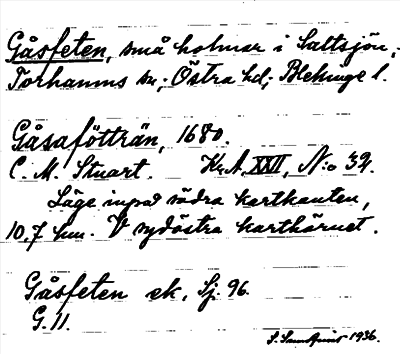 Gåsfeten, små holmar i Saltsjön,
Torhamns sn; Östra hd; Blekinge l.
Gåsafötträn, 1680.
C. M. Stuart. Kr.A. XXII, N:o 39.
Läge invid södra kartkanten,
10,7 km. V sydöstra karthörnet.
Gåsfeten ek. Sj. 96.
G. 11.
1936.